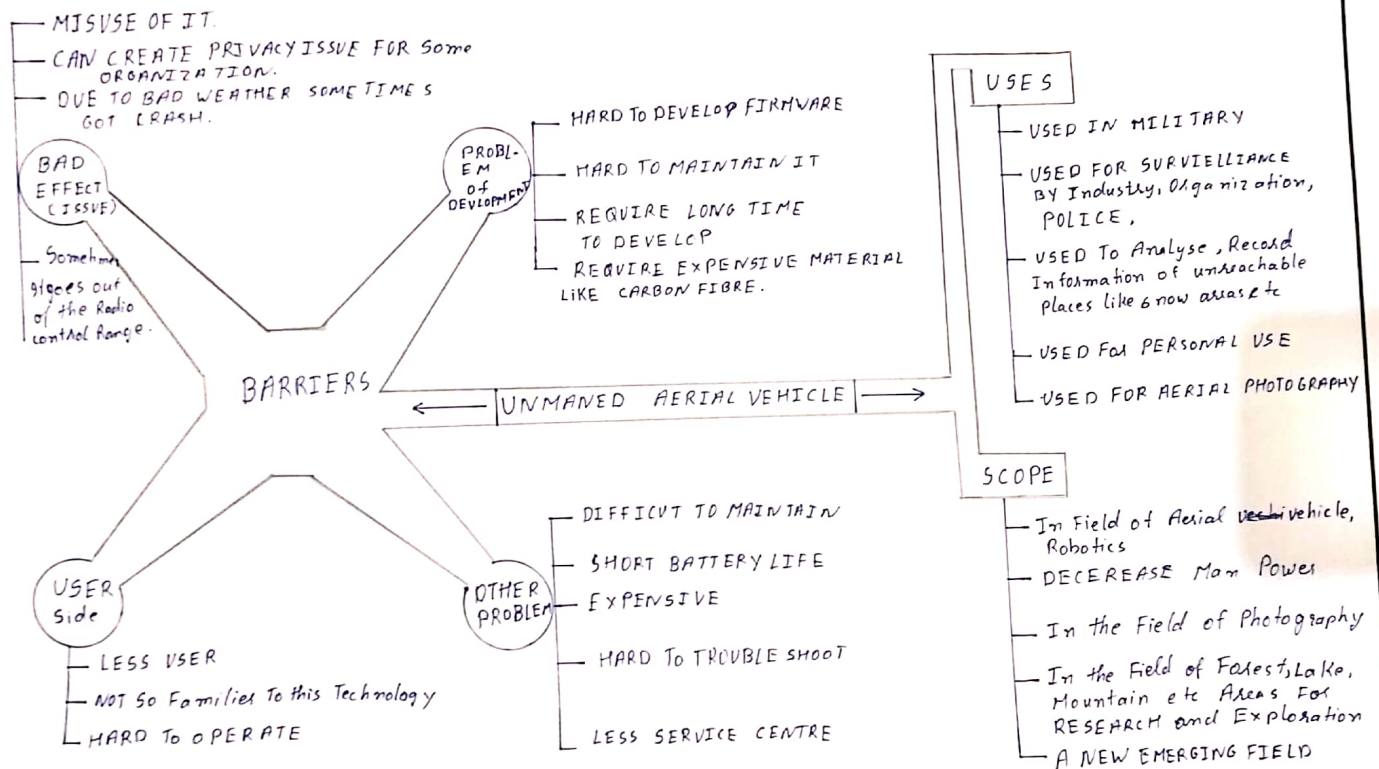 MISUSE OF IT.
CAN CREATE PRIVACY ISSUE FOR Some
ORGANIZATION.
DUE TO BAD WEATHER SOMETIMES
GOT CRASH.
BAD
EFFECT
(ISSUE)
Sometimes
It goes out
of the Radio
control Range.
PROBL-
EM
of
DEVLOPMENT
HARD TO DEVELOP FIRMWARE
HARD TO MAINTAIN IT
REQUIRE LONG TIME
TO DEVELOP
REQUIRE EXPENSIVE MATERIAL
LIKE CARBON FIBRE.
BARRIERS
UNMANED AERIAL VEHICLE
USER
Side
LESS USER
NOT So Families To this Technology
HARD TO OPERATE
OTHER
PROBLEM
DIFFICUT TO MAINTAIN
SHORT BATTERY LIFE
EXPENSIVE
HARD TO TROUBLE SHOOT
LESS SERVICE CENTRE
USES
USED IN MILITARY
USED FOR SURVIELLIANCE
BY Industry, Organization,
POLICE,
USED To Analyse, Record
Information of unreachable
Places like snow areas etc
USED For PERSONAL USE
USED FOR AERIAL PHOTOGRAPHY
SCOPE
In Field of Aerial vehicle,
Robotics
DECEREASE Man Power
In the Field of Photography
In the Field of Forest, Lake,
Mountain etc Areas For
RESEARCH and Exploration
A NEW EMERGING FIELD